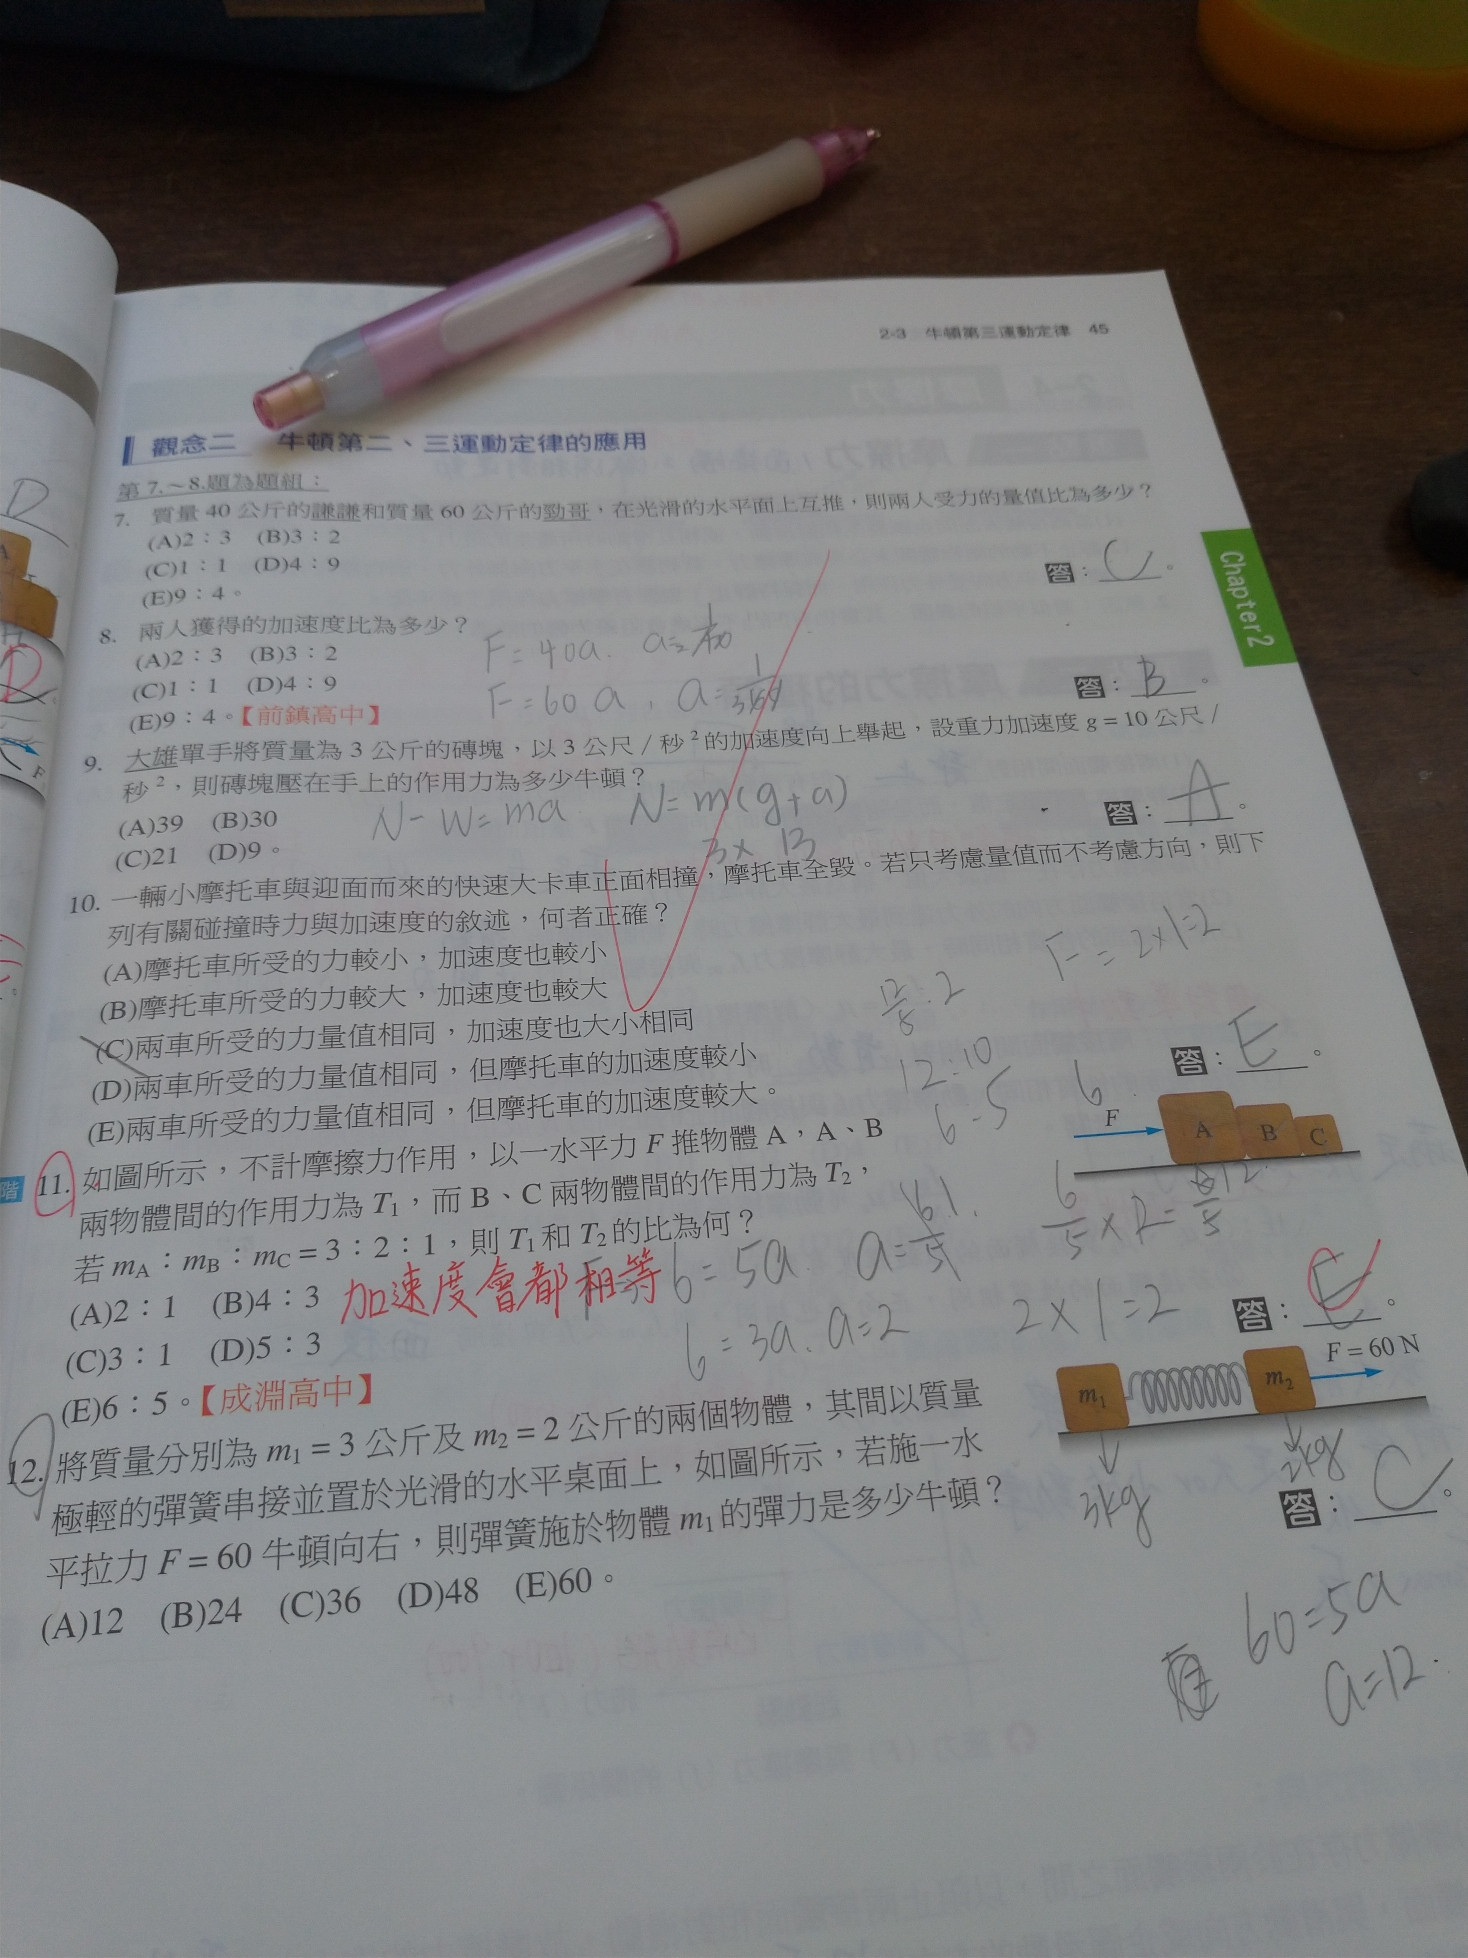 2-3 牛頓第三運動定律 45
觀念二 牛頓第二、三運動定律的應用
第 7.～8.題為題組：
7. 質量 40 公斤的謙謙和質量 60 公斤的勁哥，在光滑的水平面上互推，則兩人受力的量值比為多少？
(A)2：3 (B)3：2
(C)1：1 (D)4：9
(E)9：4。
答：C。
8. 兩人獲得的加速度比為多少？
(A)2：3 (B)3：2
(C)1：1 (D)4：9
(E)9：4。【前鎮高中】
F=40a.
F=60a,
答：B。
9. 大雄單手將質量為 3 公斤的磚塊，以 3 公尺／秒²的加速度向上舉起，設重力加速度 g = 10 公尺／
秒²，則磚塊壓在手上的作用力為多少牛頓？
(A)39 (B)30
(C)21 (D)9。
N-W=ma N=m(g+a)
3×13
答：A。
10. 一輛小摩托車與迎面而來的快速大卡車正面相撞，摩托車全毀。若只考慮量值而不考慮方向，則下
列有關碰撞時力與加速度的敘述，何者正確？
(A)摩托車所受的力較小，加速度也較小
(B)摩托車所受的力較大，加速度也較大
(C)兩車所受的力量值相同，加速度也大小相同
(D)兩車所受的力量值相同，但摩托車的加速度較小
(E)兩車所受的力量值相同，但摩托車的加速度較大。
答：E。
F=2×1=2
12/5:2
12:10
6:5
Chapter 2
階
11. 如圖所示，不計摩擦力作用，以一水平力 F 推物體 A，A、B
兩物體間的作用力為 T₁，而 B、C 兩物體間的作用力為 T₂，
若 mA：mB：mC = 3：2：1，則 T₁ 和 T₂ 的比為何？
(A)2：1 (B)4：3
(C)3：1 (D)5：3
(E)6：5。【成淵高中】
加速度會都相等
6
F
A B C
6=5a
6=3a. a=2
2×1=2
答：C。
12. 將質量分別為 m₁ = 3 公斤及 m₂ = 2 公斤的兩個物體，其間以質量
極輕的彈簧串接並置於光滑的水平桌面上，如圖所示，若施一水
平拉力 F = 60 牛頓向右，則彈簧施於物體 m₁ 的彈力是多少牛頓？
(A)12 (B)24 (C)36 (D)48 (E)60。
m₁ m₂ F = 60 N
3kg
2kg
答：C。
60=5a
a=12.